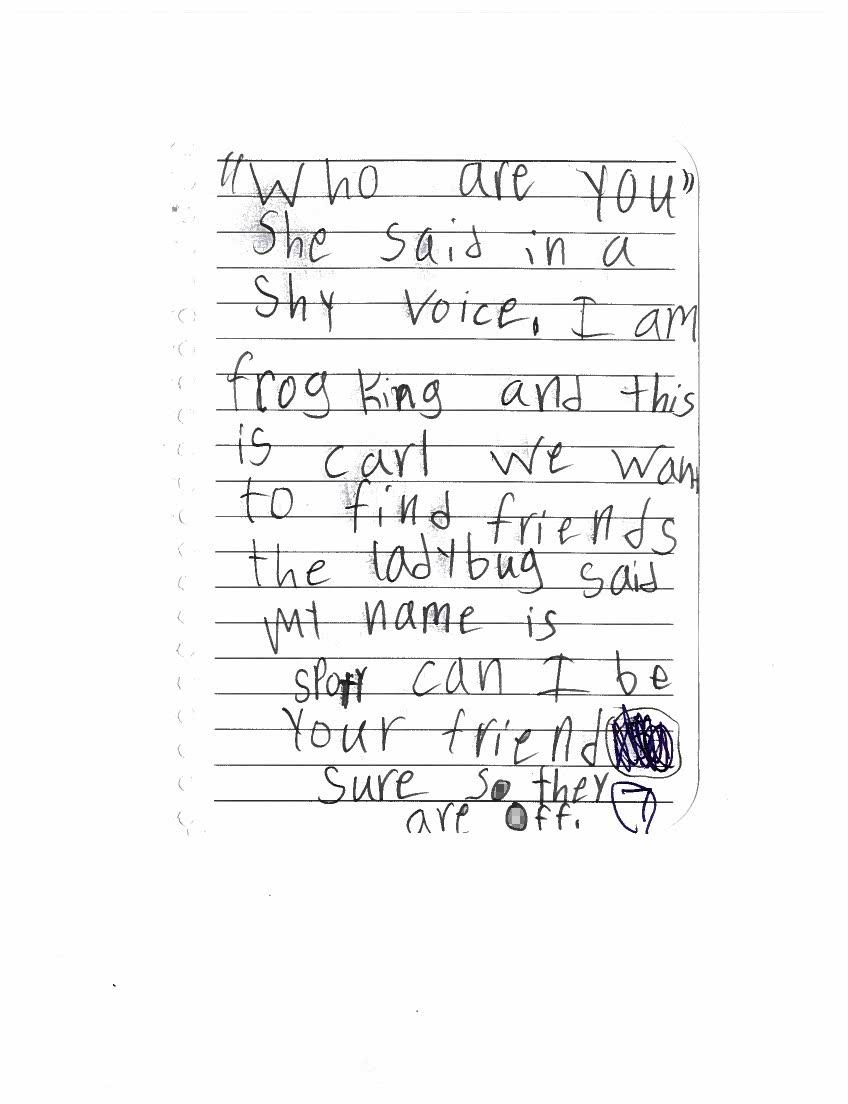 "Who are you"
She said in a
Shy Voice. I am
frog king and this
is carl we want
to find friends
the ladybug said
My name is
spotty can I be
Your friend
sure so they
are off.
7